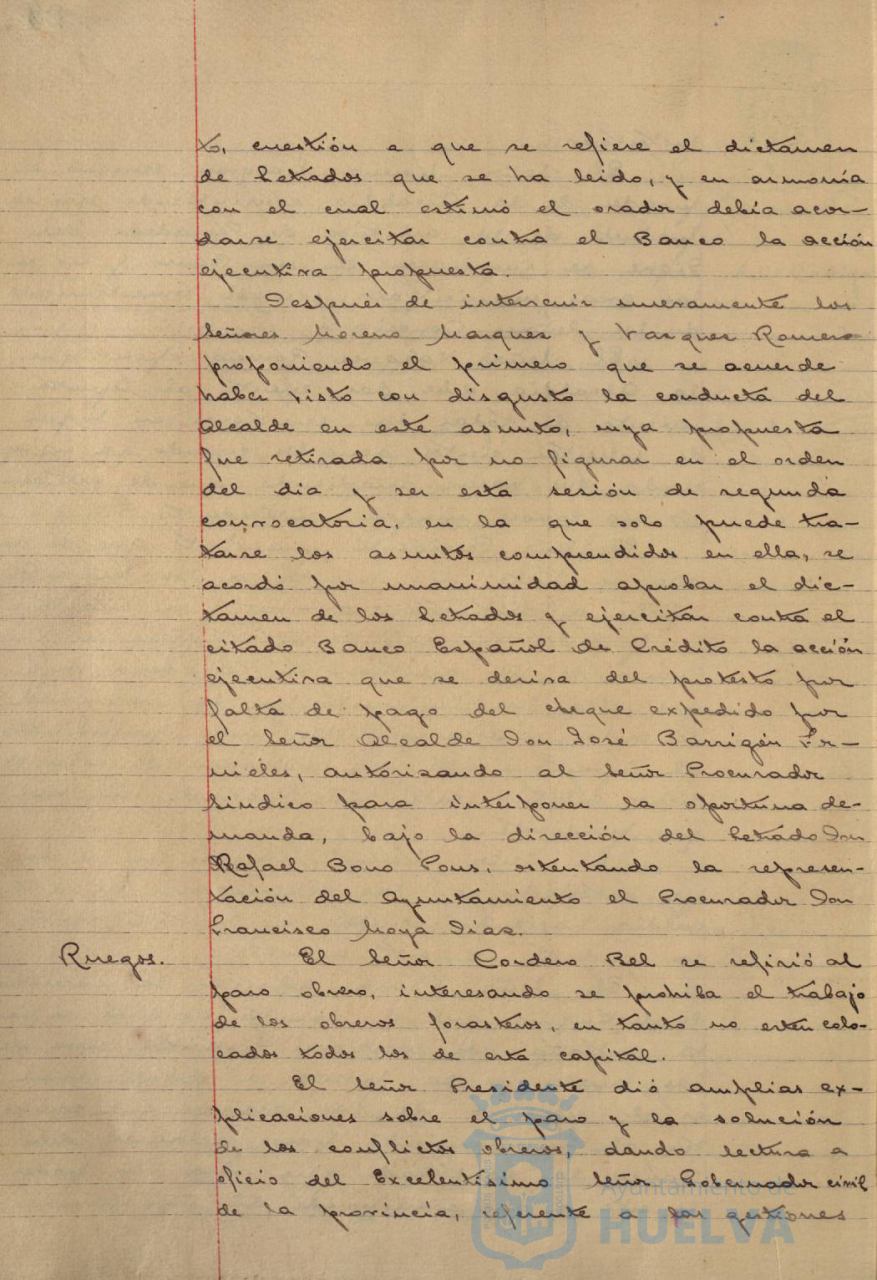 to, cuestión a que se refiere el dictamen
de Letrados que se ha leido, y en armonía
con el cual estimó el orador debía acor-
darse ejercitar contra el Banco la acción
ejecutiva propuesta.
Después de intervenir nuevamente los
Señores Moreno Marquez y Vazquez Romero
proponiendo el primero que se acuerde
haber visto con disgusto la conducta del
Alcalde en este asunto, cuya propuesta
fue retirada por no figurar en el orden
del dia y ser esta sesión de segunda
convocatoria, en la que solo puede tra-
tarse los asuntos comprendidos en ella, se
acordó por unanimidad aprobar el dic-
tamen de los Letrados y ejercitar contra el
citado Banco Español de Crédito la acción
ejecutiva que se deriva del protesto por
falta de pago del cheque expedido por
el Señor Alcalde Don José Barrigón Fr-
nieles, autorizando al Señor Procurador
Sindico para interponer la oportuna de-
manda, bajo la dirección del Letrado Don
Rafael Bono Pons, ostentando la represen-
tación del Ayuntamiento el Procurador Don
Francisco Moya Diaz.
Ruegos. El Señor Cordero Bel se refirió al
paro obrero, interesando se prohiba el trabajo
de los obreros forasteros, en tanto no esten colo-
cados todos los de esta capital.
El Señor Presidente dió amplias ex-
plicaciones sobre el paro y la solución
de los conflictos obreros, dando lectura a
oficio del Excelentísimo Señor Gobernador civil
de la provincia, referente a las gestiones
Ayuntamiento de
HUELVA